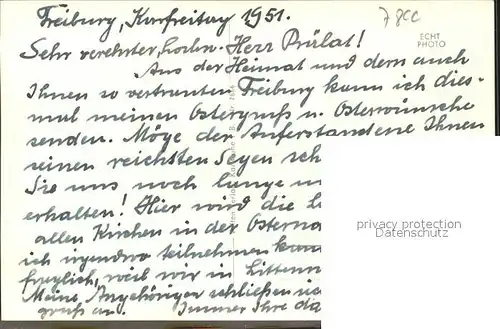 Freiburg, Karfreitag 1951.
78cc
ECHT
PHOTO
Sehr verehrter, hochw. Herr Prälat!
Aus der Heimat und dem auch
Ihnen so vertrauten Freiburg kann ich dies-
mal meinen Ostergruß u. Osterwünsche
senden. Möge der Auferstandene Ihnen
seinen reichsten Segen sch
Sie uns noch lange
erhalten! Hier wird die
allen Kirchen in der Osterna
ich irgendwo teilnehmen kann
fraglich, weil wir in Litten
Meine Angehörigen schließen
gruß an. Immer Ihre da
privacy protection
Datenschutz